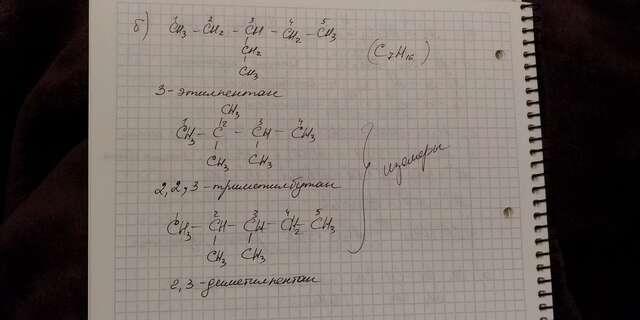 б) ¹CH₃ - ²CH₂ - ³CH - ⁴CH₂ - ⁵CH₃
CH₂
CH₃
(C₇H₁₆)
3-этилпентан
CH₃
¹CH₃ - ²C - ³CH - ⁴CH₃
CH₃ CH₃
2,2,3-триметилбутан
изомеры
¹CH₃ - ²CH - ³CH - ⁴CH₂ ⁵CH₃
CH₃ CH₃
2,3-диметилпентан